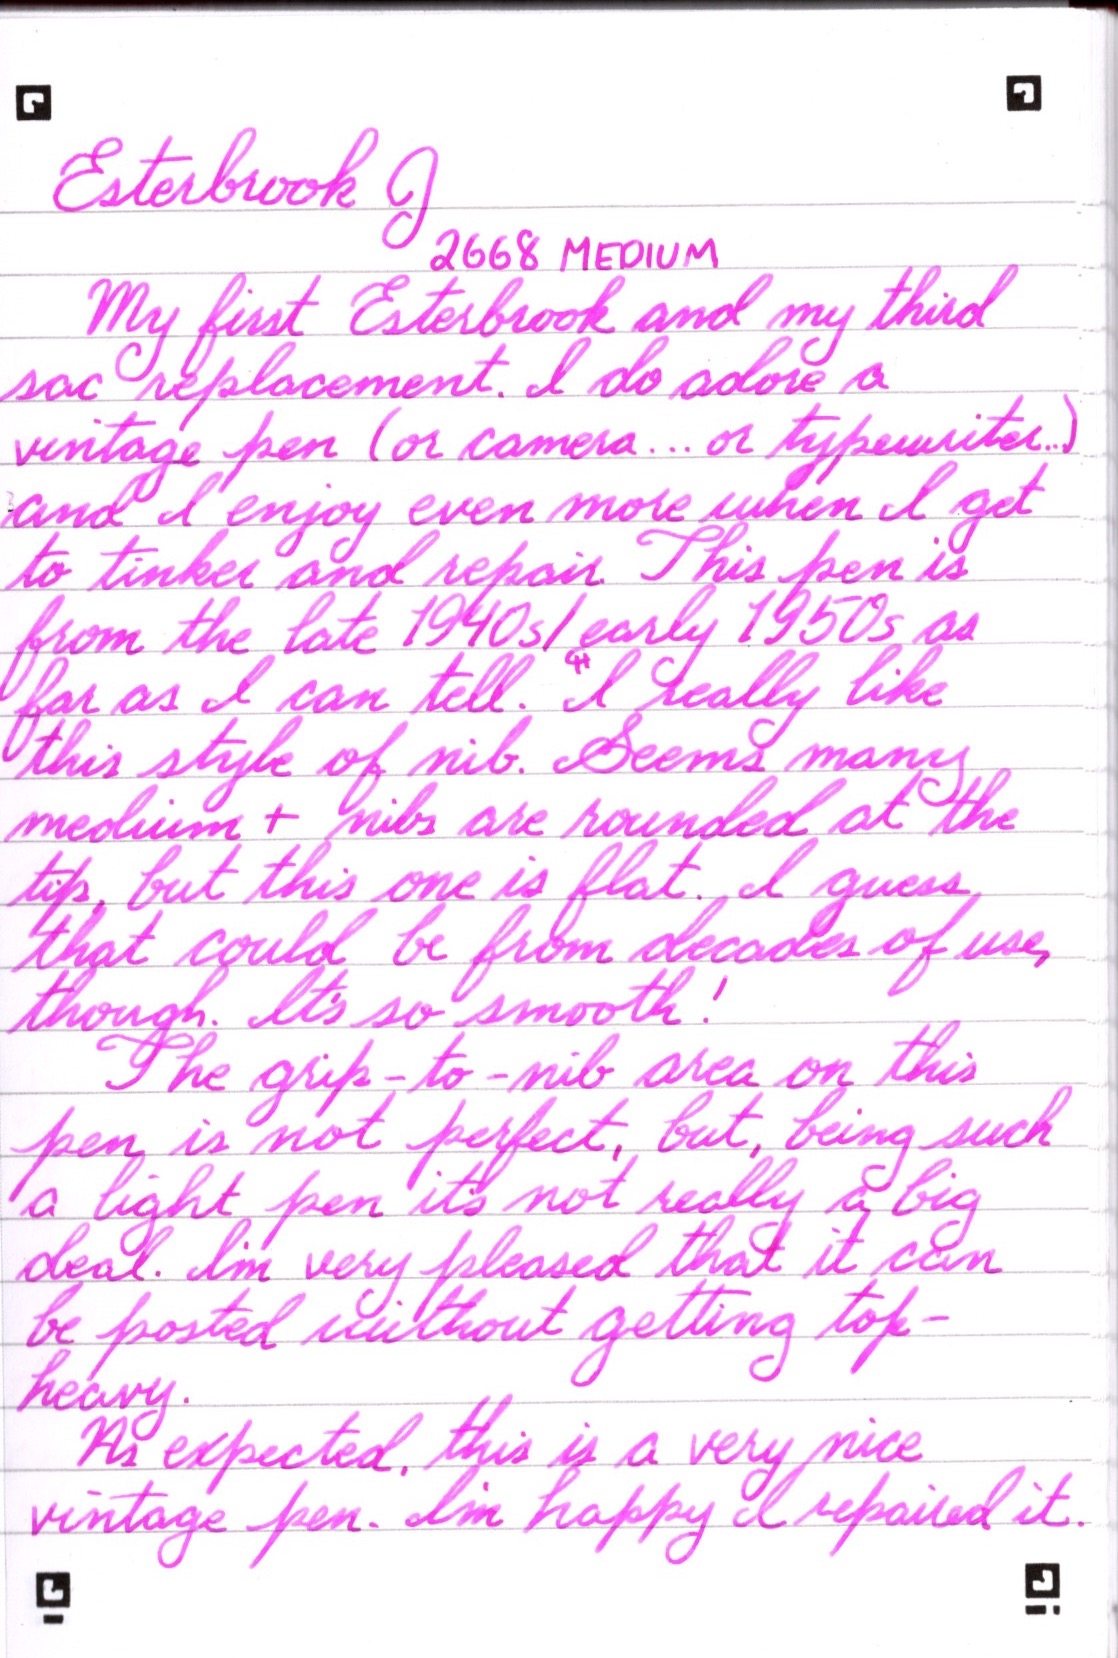 Esterbrook J
2668 MEDIUM
My first Esterbrook and my third
sac replacement. I do adore a
vintage pen (or camera... or typewriter...)
and I enjoy even more when I get
to tinker and repair. This pen is
from the late 1940s/early 1950s as
far as I can tell. ¶ I really like
this style of nib. Seems many
medium + nibs are rounded at the
tip, but this one is flat. I guess
that could be from decades of use,
though. It's so smooth!
The grip-to-nib area on this
pen is not perfect, but, being such
a light pen it's not really a big
deal. I'm very pleased that it can
be posted without getting top-
heavy.
As expected, this is a very nice
vintage pen. I'm happy I repaired it.